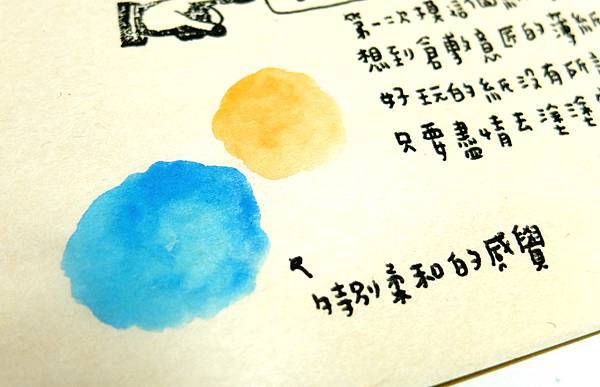 第一次摸這個紙
想到倉敷意匠的薄紙
好玩的紙沒有所
只要盡情去塗塗
特別柔和的感覺